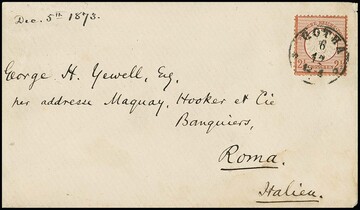 Dec. 5th 1873.
GOTHA
6
12
George H. Yewell, Esq.
per addresse Maquay, Hooker et Cie
Banquiers,
Roma.
Italien.